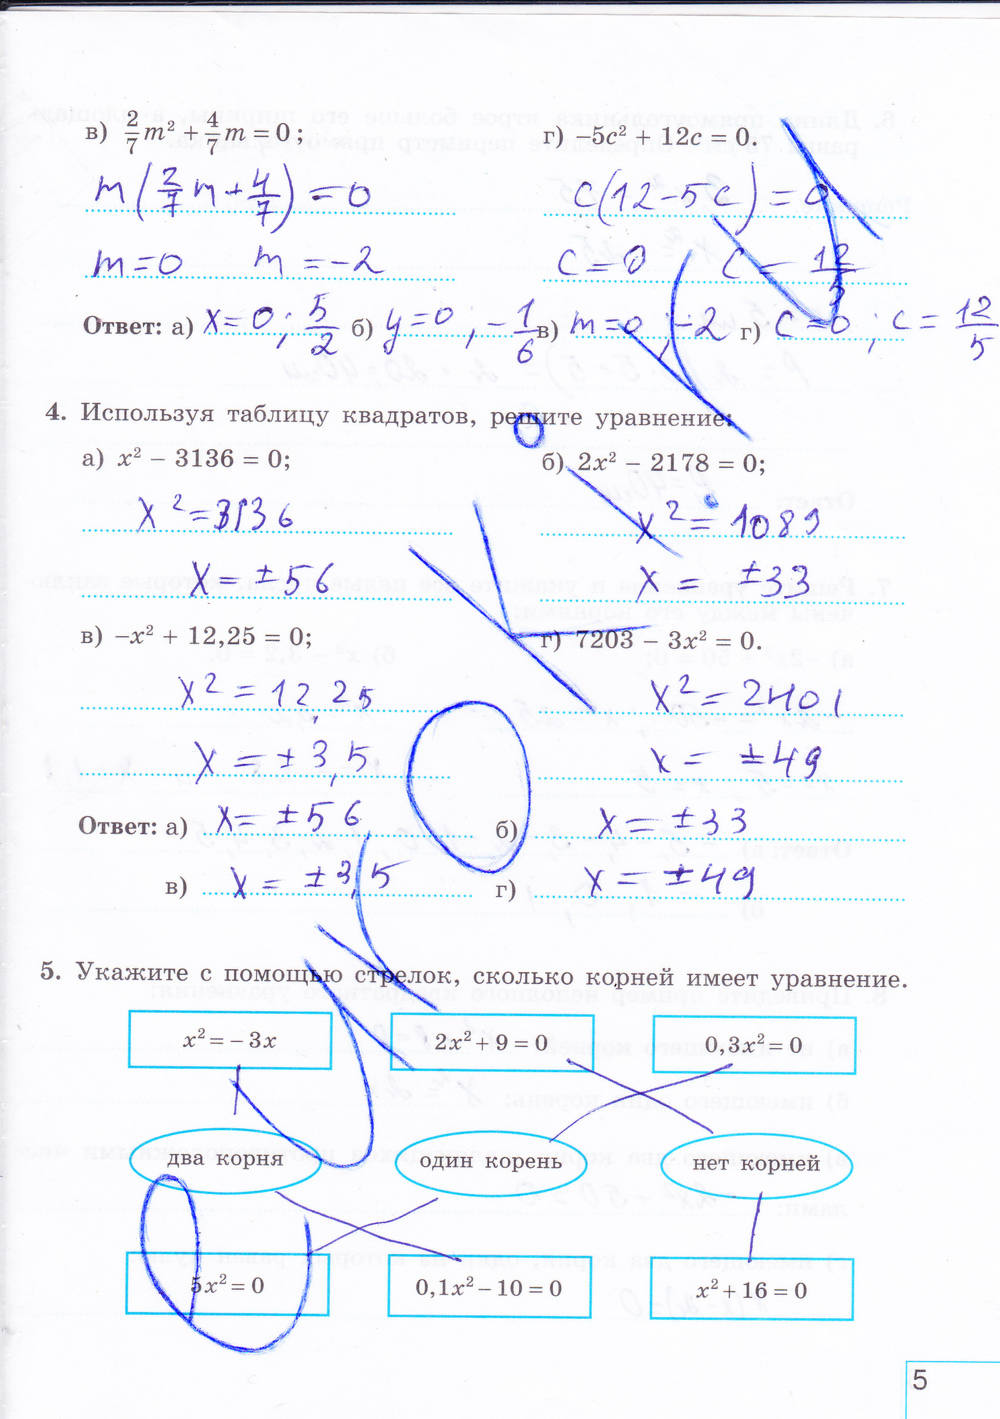 в) 2/7 m² + 4/7 m = 0; г) –5c² + 12c = 0.
m(2/7 m + 4/7) = 0 c(12 – 5c) = 0
m = 0 m = –2 c = 0 c = 12/5
Ответ: а) x = 0; 5/2 б) y = 0, –1/6 в) m = 0, –2 г) c = 0; c = 12/5
4. Используя таблицу квадратов, решите уравнение:
а) x² – 3136 = 0; б) 2x² – 2178 = 0;
x² = 3136 x² = 1089
x = ±56 x = ±33
в) –x² + 12,25 = 0; г) 7203 – 3x² = 0.
x² = 12,25 x² = 2401
x = ±3,5 x = ±49
Ответ: а) x = ±56 б) x = ±33
в) x = ±3,5 г) x = ±49
5. Укажите с помощью стрелок, сколько корней имеет уравнение.
x² = – 3x 2x² + 9 = 0 0,3x² = 0
два корня один корень нет корней
5x² = 0 0,1x² – 10 = 0 x² + 16 = 0
5